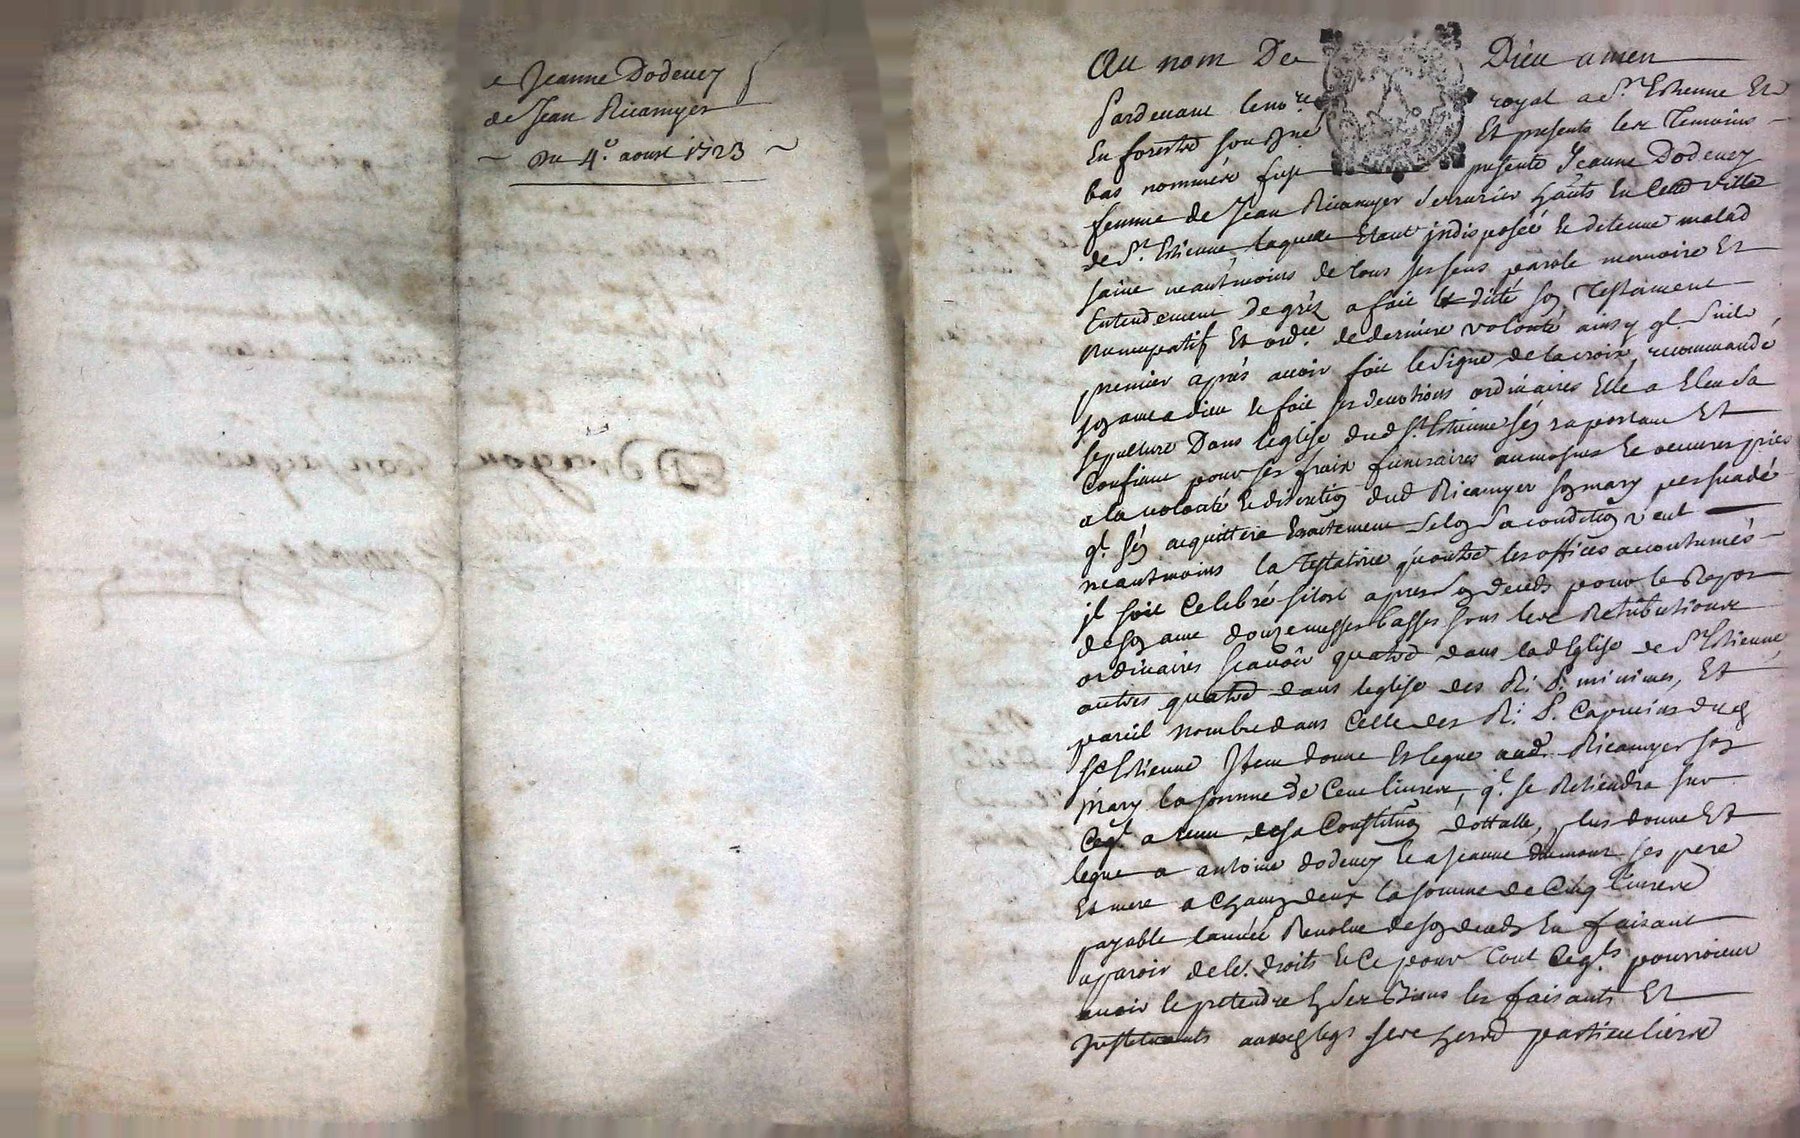 de Jeanne Dodevey
de Jean Ricamyer
~ Du 4.e aoust 1723 ~
Au nom De Dieu amen
Pardevant le no.re royal a S.t Estienne En
En forestz soubzné Et presents les Temoins
bas nommés fust presente Jeanne Dodevey
femme de Jean Ricamyer serrurier hãnts En Cette ville
de S.t Estienne laquelle Etant jndisposée et detenue malad
saine neantmoins de tous ses sens parole memoire Et
Entendement De gréz a fait Et dicté soy Testament
Nuncupatif Et ord.ce de derniere volonté ainsy q.l suit
premier après avoir fait le signe de la croix, recommandé
soy ame a dieu et fait ses devotions ordinaires Elle a Eleu sa
sepulture Dans l'eglise dud S.t Estienne s'en raportant Et
Confiant pour ses fraix funeraires aumosnes Et oeuvres pies
a la volonté et discretioy dud Ricamyer soy mary persuadé
q.l s'en acquittera Exactement seloy sa conditioy veut
neantmoins la Testatrice qu'outre les offices accoutumés
jl soit Celebré sitost apres soy deceds pour le Repos
de soy ame douze messes basses sous les Retributions
ordinaires scavoir quatre dans lad Eglise de S.t Estienne
autres quatre dans leglise des R. P. minimes, Et
pareil nombre dans Celle des R. P. Capucins dud
St Estienne Item donne Et legue aud. Ricamyer soy
mary la somme de Cent livres, q.l se Retiendra sur
Ce q.l a receu de sa Constitu͠oy dottalle, plus donne Et
legue a antoine dodevey et a jeanne dumont ses pere
Et mere a Chacuy deux la somme de Cinq livres
payable l'année Revolue de soy deceds En faisant
aparoir de le.r droits et Ce pour tout Ce q.ls pourroient
avoir et pretendre En ses Biens les faisants Et
jnstituants auxd legs ses hers particuliers